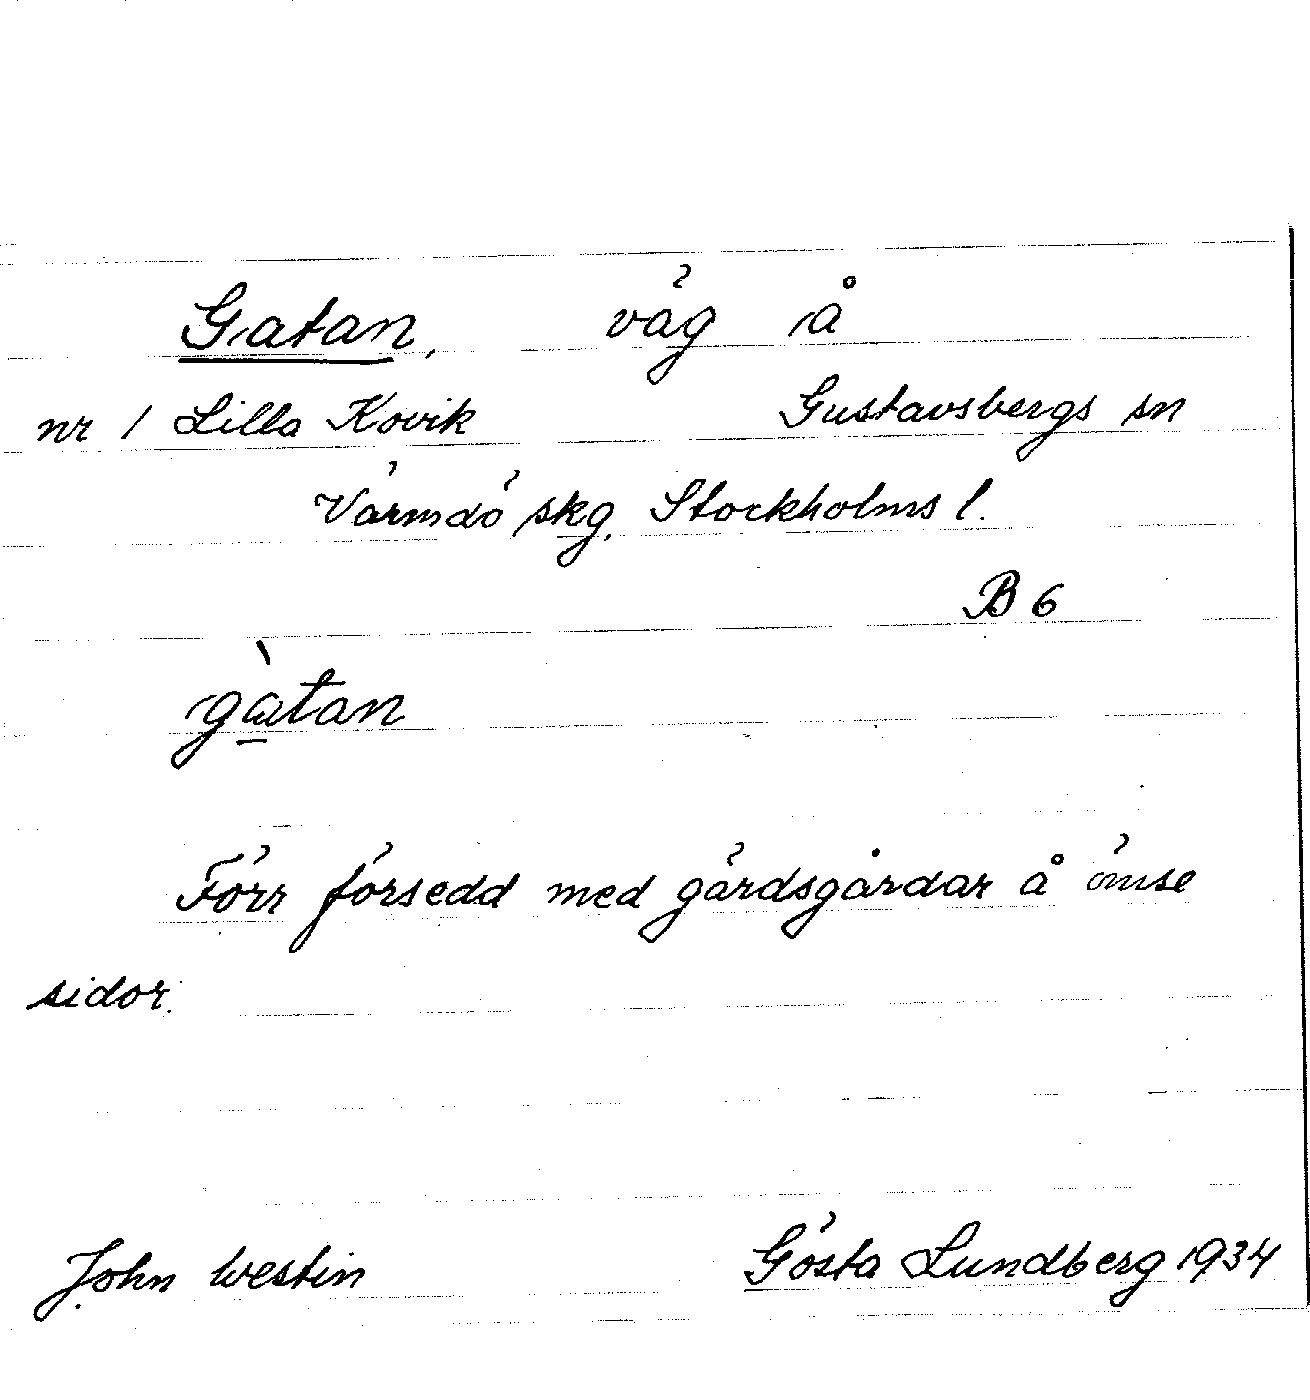 Gatan, väg å
nr 1 Lilla Kovik Gustavsbergs sn
Värmdö skg, Stockholms l.
B 6
gàtan
Förr försedd med gärdsgårdar å ömse
sidor.
John Westin Gösta Lundberg 1934